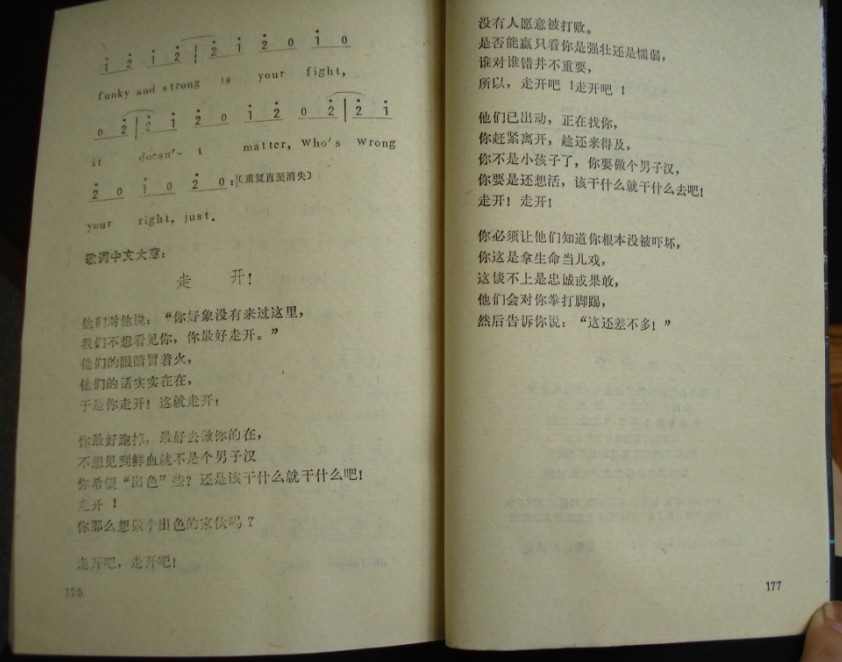 i 2 i 2 | 2 i 2 0 i 0
funky and strong is your fight,
0 2 | 2 i 2 0 i 2 0 2 | 2 i
it doesn't matter, Who's Wrong
2 0 i 0 2 0 :‖（重复直至消失）
your right, just.
歌词中文大意：
走 开！
他们对他说：“你好象没有来过这里，
我们不想看见你，你最好走开。”
他们的眼睛冒着火，
他们的话实实在在，
于是你走开！这就走开！
你最好跑掉，最好去做你的在，
不想见到鲜血就不是个男子汉
你希望“出色”些？还是该干什么就干什么吧！
走开！
你那么想做个出色的家伙吗？
走开吧，走开吧！
176
没有人愿意被打败。
是否能赢只看你是强壮还是懦弱，
谁对谁错并不重要，
所以，走开吧！走开吧！
他们已出动，正在找你，
你赶紧离开，趁还来得及，
你不是小孩子了，你要做个男子汉，
你要是还想活，该干什么就干什么去吧！
走开！走开！
你必须让他们知道你根本没被吓坏，
你这是拿生命当儿戏，
这谈不上是忠诚或果敢，
他们会对你拳打脚踢，
然后告诉你说：“这还差不多！”
177